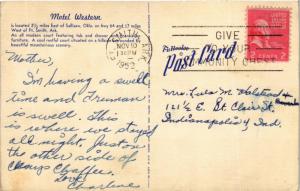 Motel Western
is located 2½ miles East of Sallisaw, Okla. on hwy 64 and 17 miles
West of Ft. Smith, Ark.
An all modern court featuring tub and shower
A cool restful court situated on a hillside surrounded by
beautiful mountainous scenery.
Mother,
I'm having a swell
time and Truman
is swell. This
is where we stayed
all night, Just on
the other side of
Camp Chaffee.
Love,
Charlene
NOV 10
1 PM
1952
ARK.
GIVE
Post Card
COMMUNITY CHEST
Mrs. Lula M. Halstead +
121½ E. St. Clair St.
Indianapolis 4, Ind.